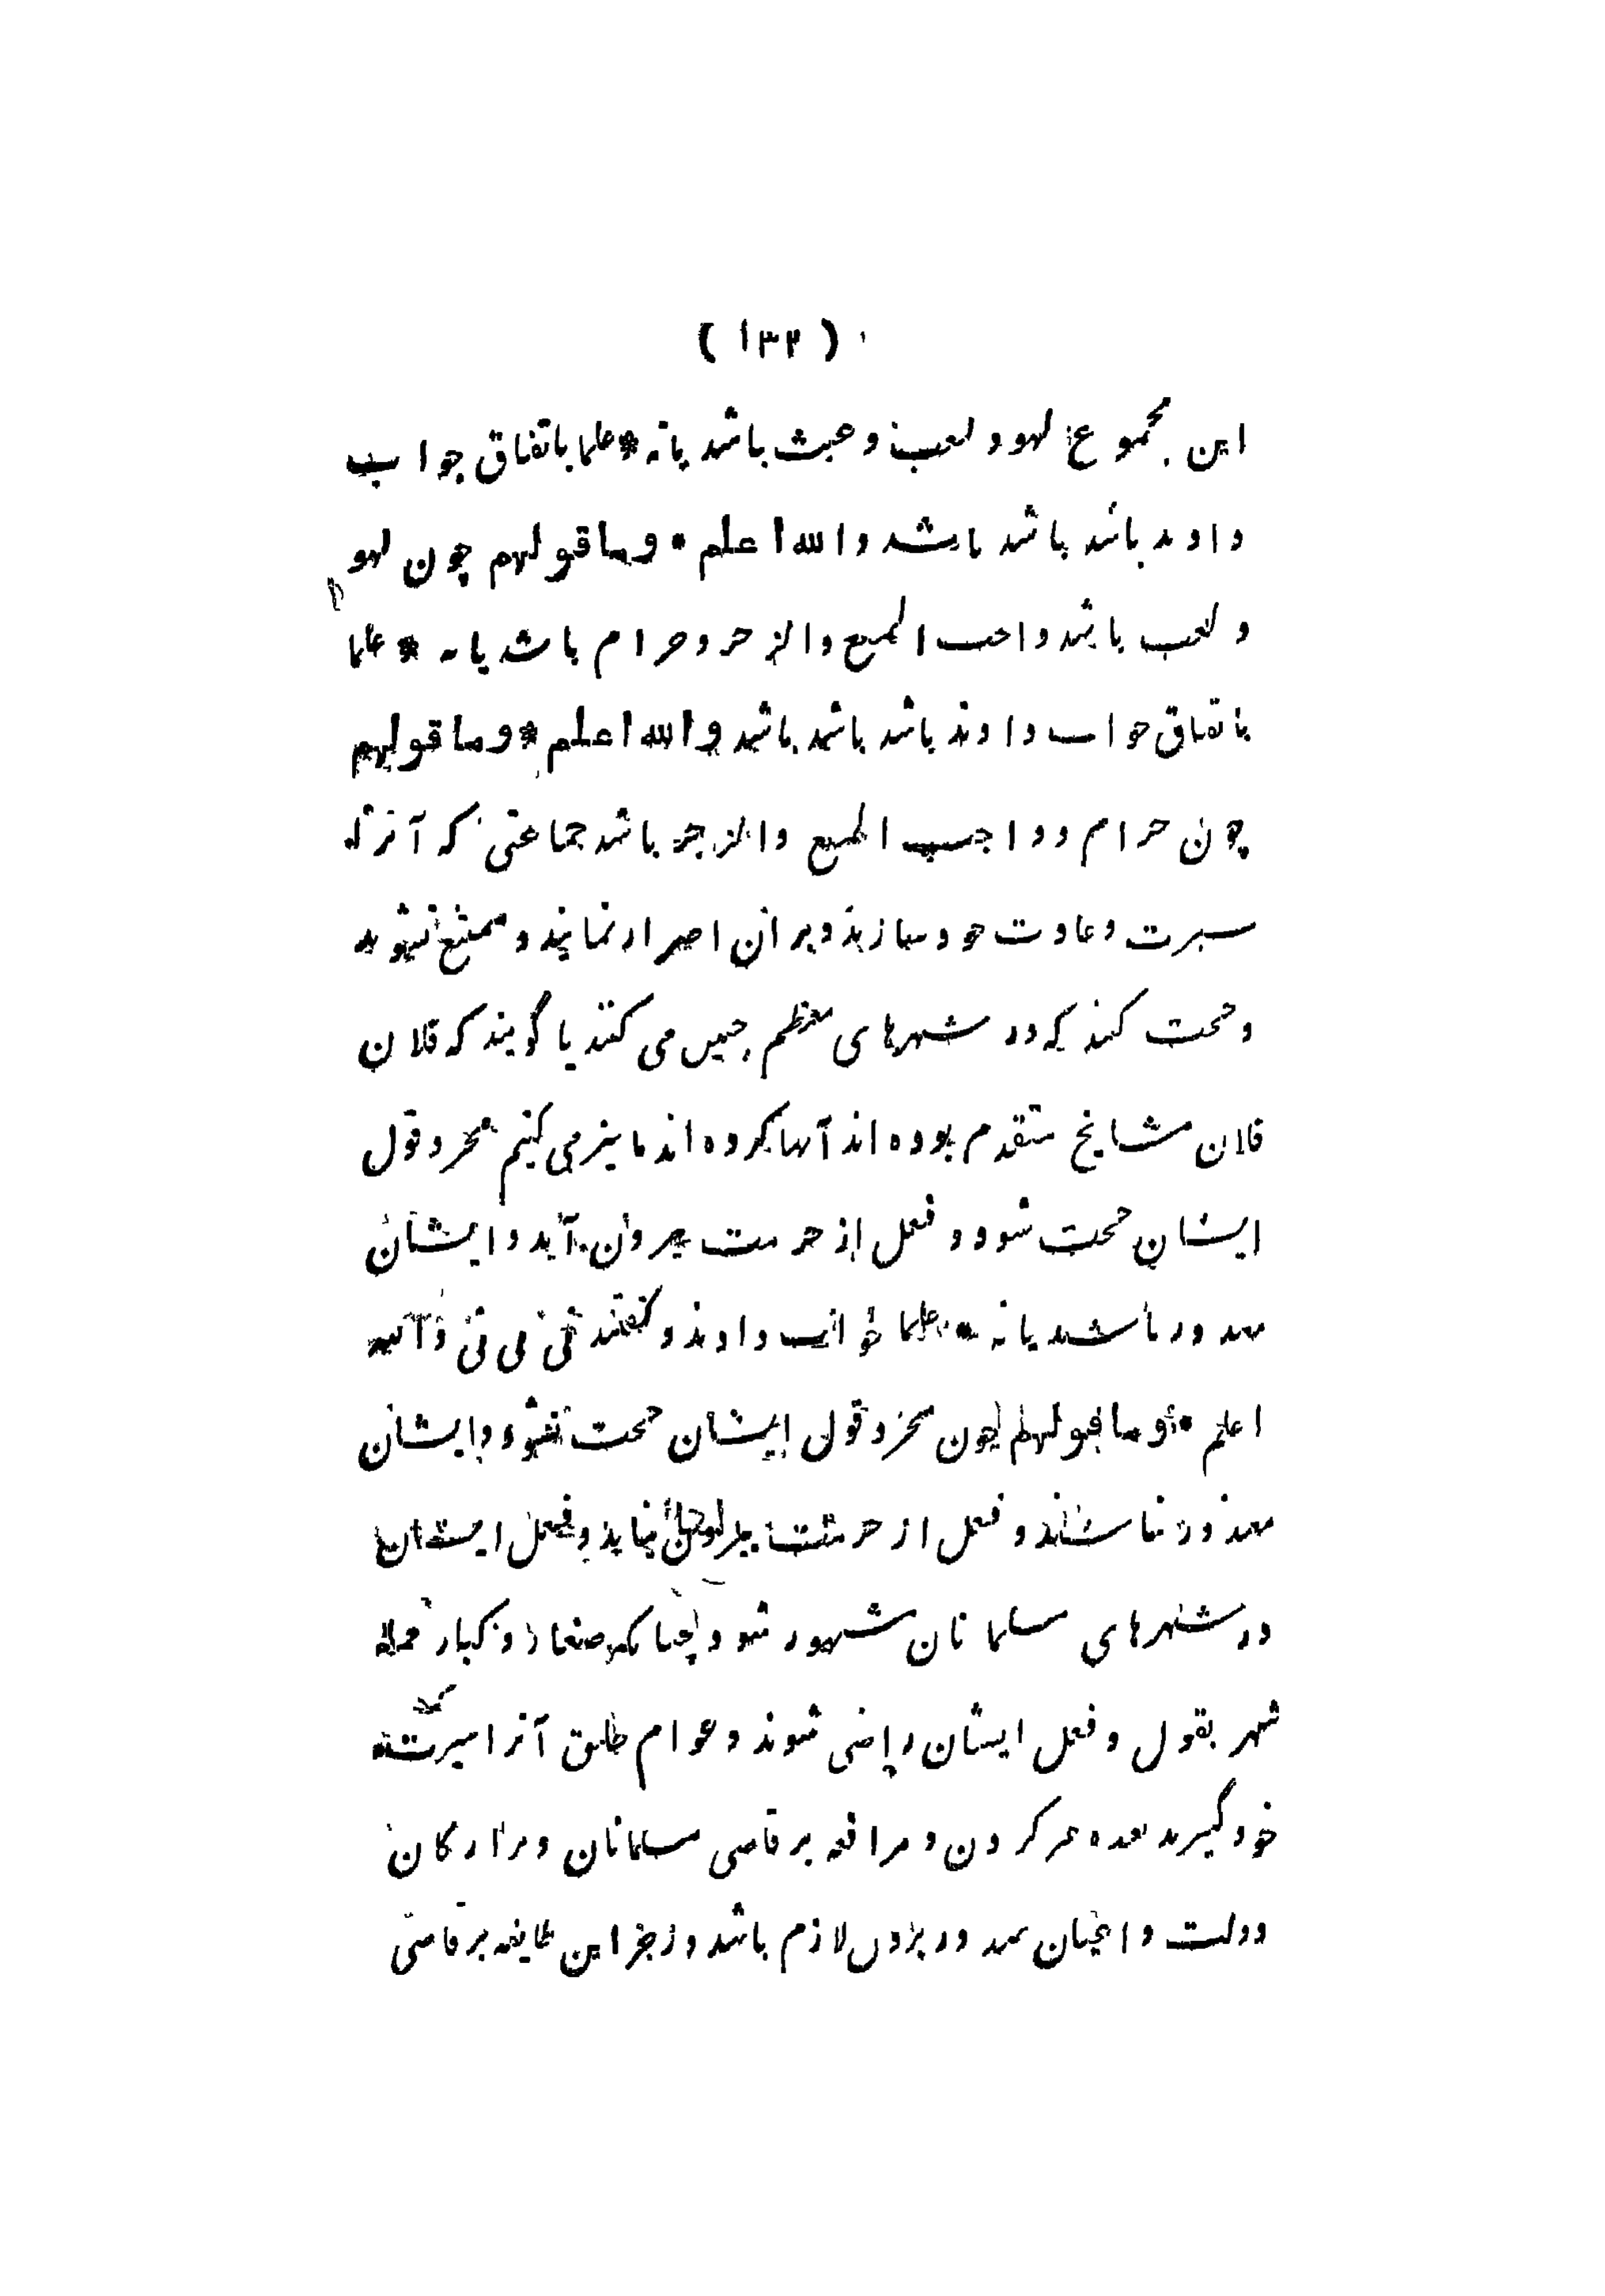 ( ۱۳۲ )
این مجموع لهو و لعب و عبث باشد یا نه * علما باتفاق جواب
دادند باشد باشد باشد والله اعلم * وما قولهم چون لهو
و لعب باشد واجب المنع والزجر و حرام باشد یا نه * علما
باتفاق جواب دادند باشد باشد باشد والله اعلم * وما قولهم
چون حرام و واجب المنع والزجر باشد جماعتی که آنرا
سیرت و عادت خود سازند و بران اصرار نمایند و ممتنع نشوند
و حجت کنند که در شهرهای معظم چنین می کنند یا گویند که فلان
فلان مشایخ متقدم بوده اند آنها کرده اند ما نیز می کنیم مجرد قول
ایشان حجت شود و فعل از حرمت بیرون آید و ایشان
معذور باشند یا نه * علما جواب دادند و گفتند نی نی نی والله
اعلم * وما قولهم چون مجرد قول ایشان حجت نشود و ایشان
معذور نباشند و فعل از حرمت بیرون نیاید و فعل ایشان
در شهرهای مسلمانان مشهور شود چنانکه صغار و کبار
شهر بقول و فعل ایشان راضی شوند و عوام خلق آنرا سیرت
خود گیرند بعده کردن و مرافعه بر قاضی مسلمانان و بر ارکان
دولت و اعیان لازم باشد و زجر این طایفه بر قاضی